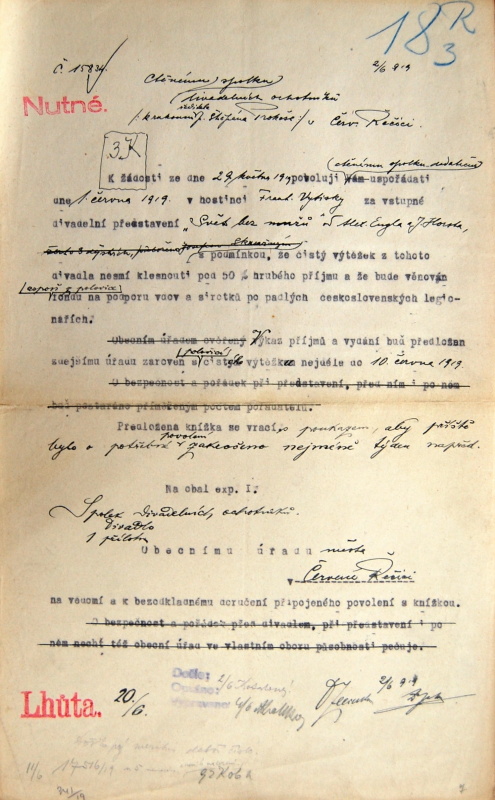 18 R/3
Č. 1583
2/6 919
ctěnému spolku
divadelních ochotníků
Nutné.
v Červ. Řečici.
3K
ctěnému spolku
K žádosti ze dne 29. května povoluji Vám uspořádati
dne 1. června 1919. v hostinci Frant. za vstupné
divadelní představení „Svět bez mužů“ od Alex. Engla a J. Horsta,
s podmínkou, že čistý výtěžek z tohoto
divadla nesmí klesnouti pod 50 % hrubého příjmu a že bude věnován
aspoň z polovice
fondu na podporu vdov a sirotků po padlých československých legio-
nářích.
Obecním úřadem ověřený Výkaz příjmů a vydání buď předložen
zdejšímu úřadu zároveň s čistým výtěžkem nejdéle do 10. června 1919.
O bezpečnost a pořádek při představení, před ním i po něm
buď postaráno přiměřeným počtem pořadatelů.
Předložená knížka se vrací s poukazem, aby příště
povolení
bylo o potřebné zakročeno nejméně týden napřed.
Na obal exp. I.
Spolek divadelních ochotníků.
Divadlo
1 příloha
Obecnímu úřadu města
v Červené Řečici
na vědomí a k bezodkladnému doručení připojeného povolení s knížkou.
O bezpečnost a pořádek před divadlem, při představení i po
něm nechť též obecní úřad ve vlastním oboru působnosti pečuje.
Došlo: 2/6
Opsáno:
2/6 919
Lhůta. 20/6.
11/6
7